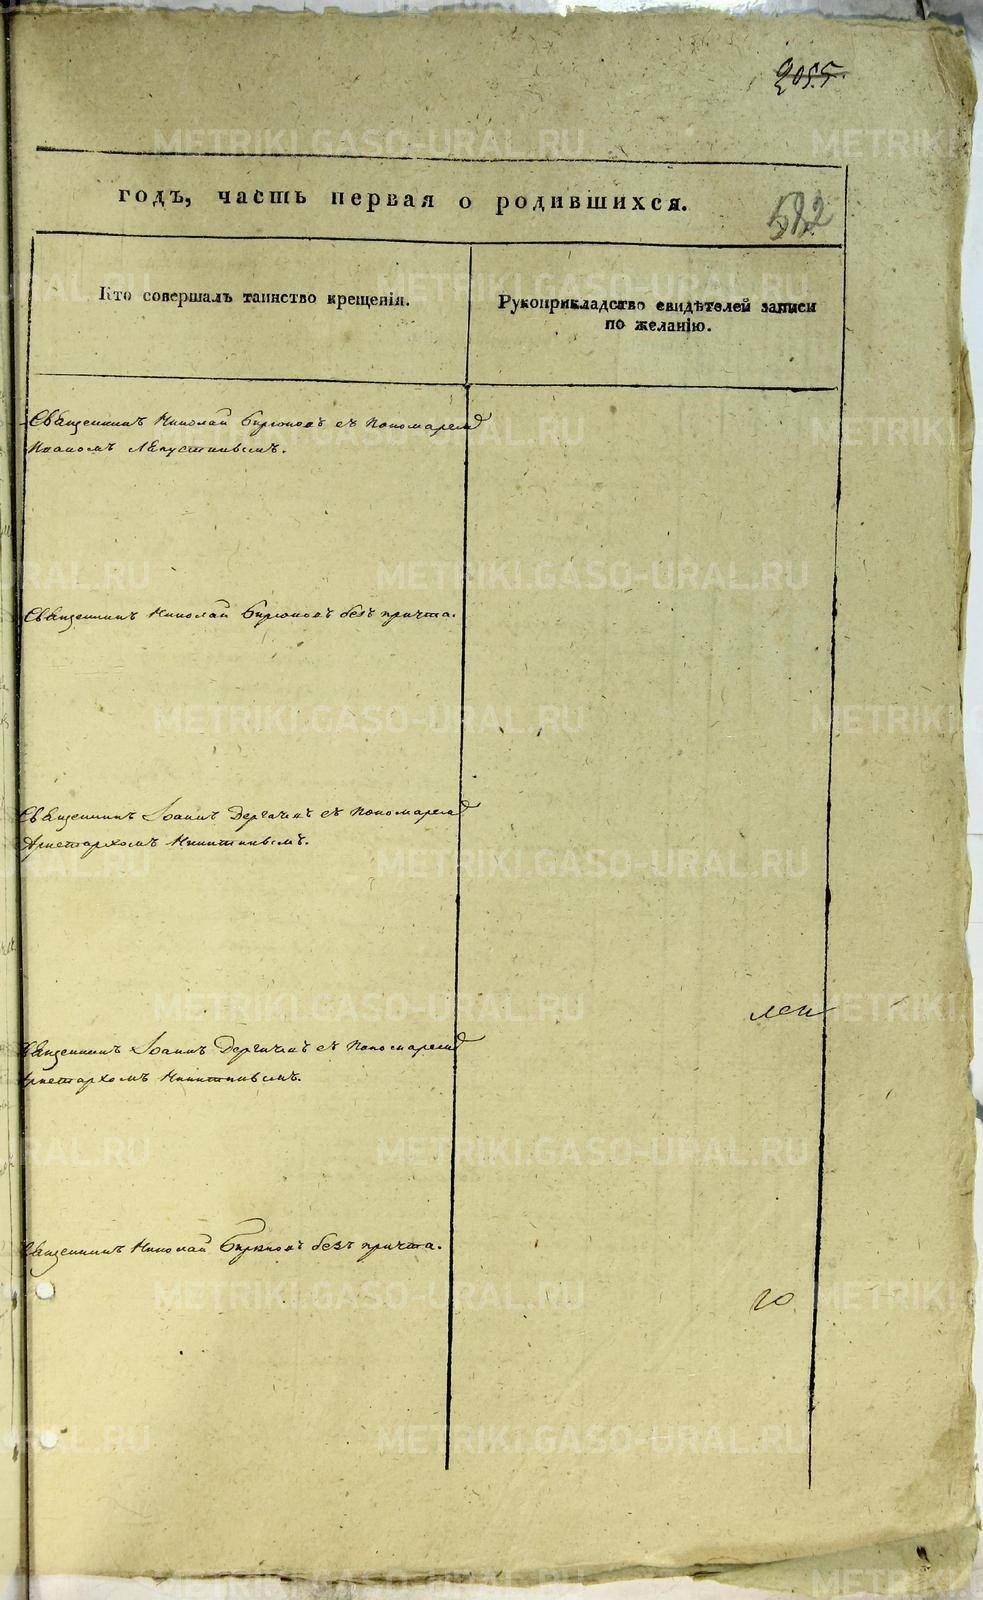 2055.
годъ, часть первая о родившихся.
582
Кто совершалъ таинство крещенія.
Рукоприкладство свидѣтелей записи
по желанію.
Священникъ Николай Бирюковъ съ Пономаремъ
Иваномъ
Священникъ Николай Бирюковъ безъ причта.
Священникъ Іоаннъ Дергачевъ съ Пономаремъ
Аристархомъ Никитинымъ.
Священникъ Іоаннъ Дергачевъ съ Пономаремъ
Аристархомъ Никитинымъ.
Священникъ Николай Бирюковъ безъ причта.
го
METRIKI.GASO-URAL.RU